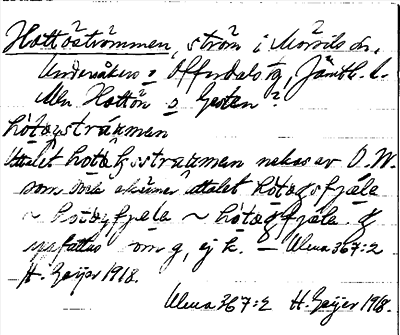 Hottöströmmen, ström i Mörsils sn,
Undersåkers o Offerdals tg, Jämtl. l.
Mln Hottön o Gesten?
hótögsträwmen
Uttalet hotögsstrawmen nekas av O.W.
som även skriver uttalet hötögsfjäla
~ hotögfjäla ~ hötögfjäla. g
uppfattas som g, ej k. — Ulma 367:2
H. Geijer 1918.
Ulma 367:2 H. Geijer 1918.